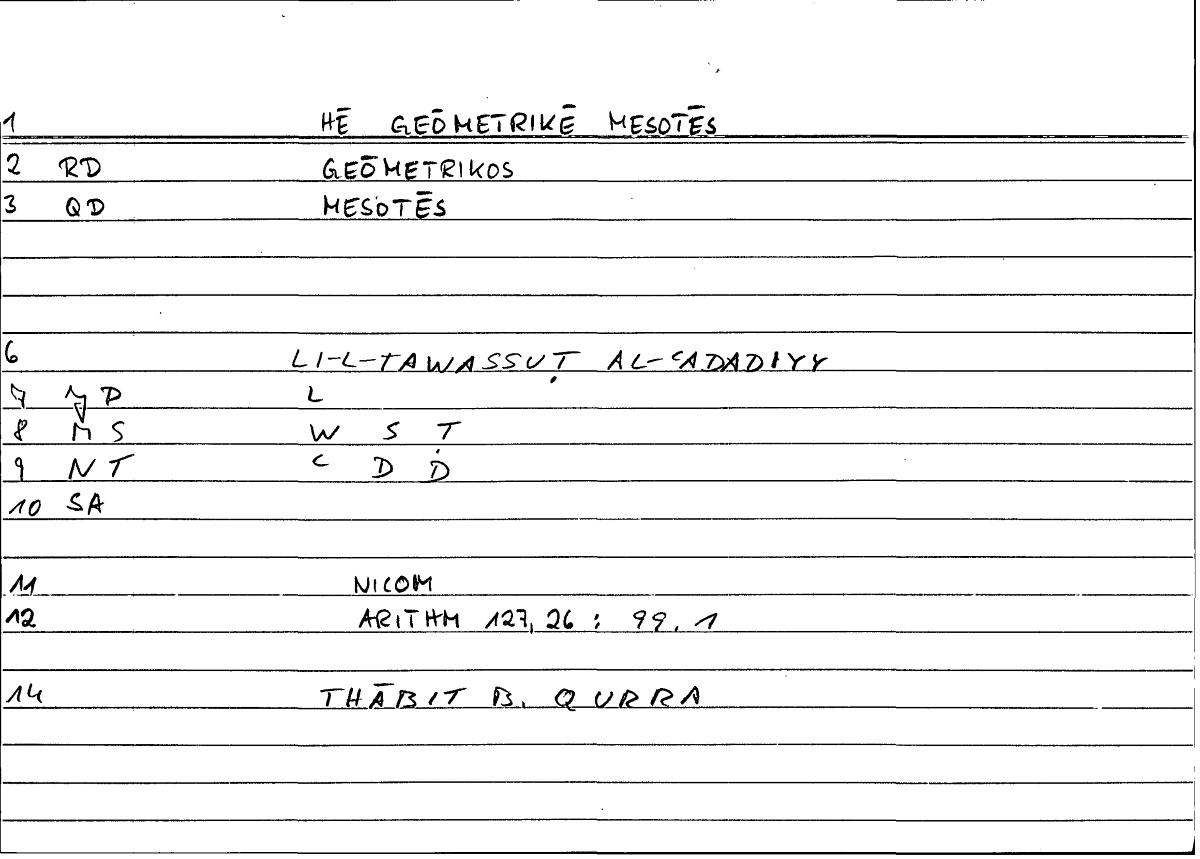 1 HĒ GEŌMETRIKĒ MESOTĒS
2 RD GEŌMETRIKOS
3 QD MESOTĒS
6 LI-L-TAWASSUṬ AL-ʿADADIYY
7 D L
8 MS W S Ṭ
9 NT ʿ D D
10 SA
11 NICOM
12 ARITHM 127,26 : 99.1
14 THĀBIT B. QURRA